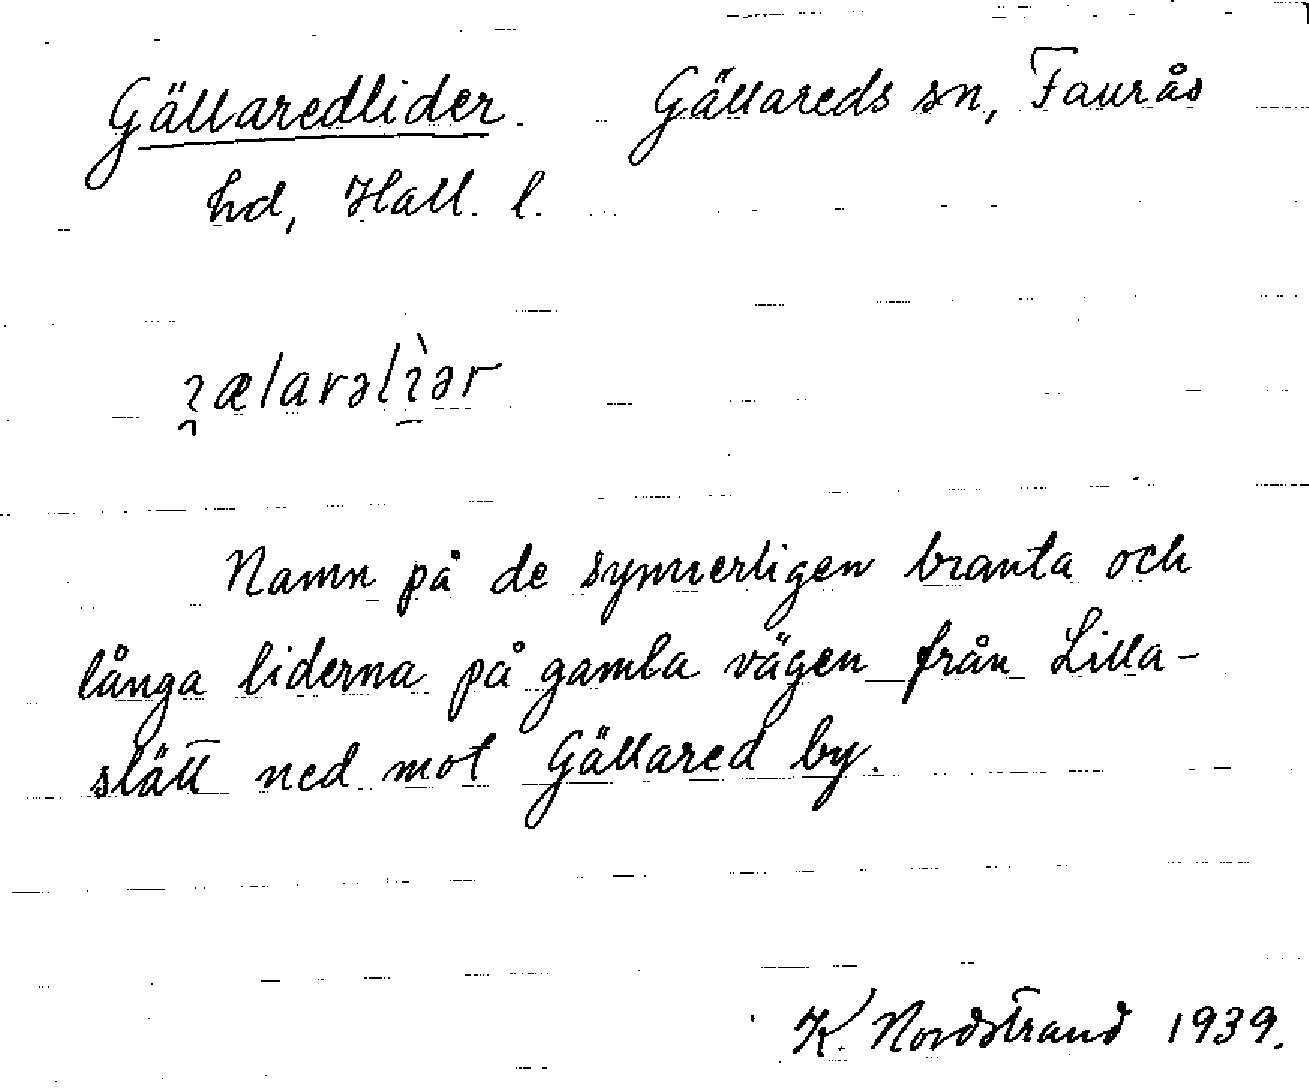 Gällaredlider. Gällareds sn, Faurås
hd, Hall. l.
Namn på de synnerligen branta och
långa liderna på gamla vägen från Lilla-
slätt ned mot Gällared by.
K. Nordstrand 1939.